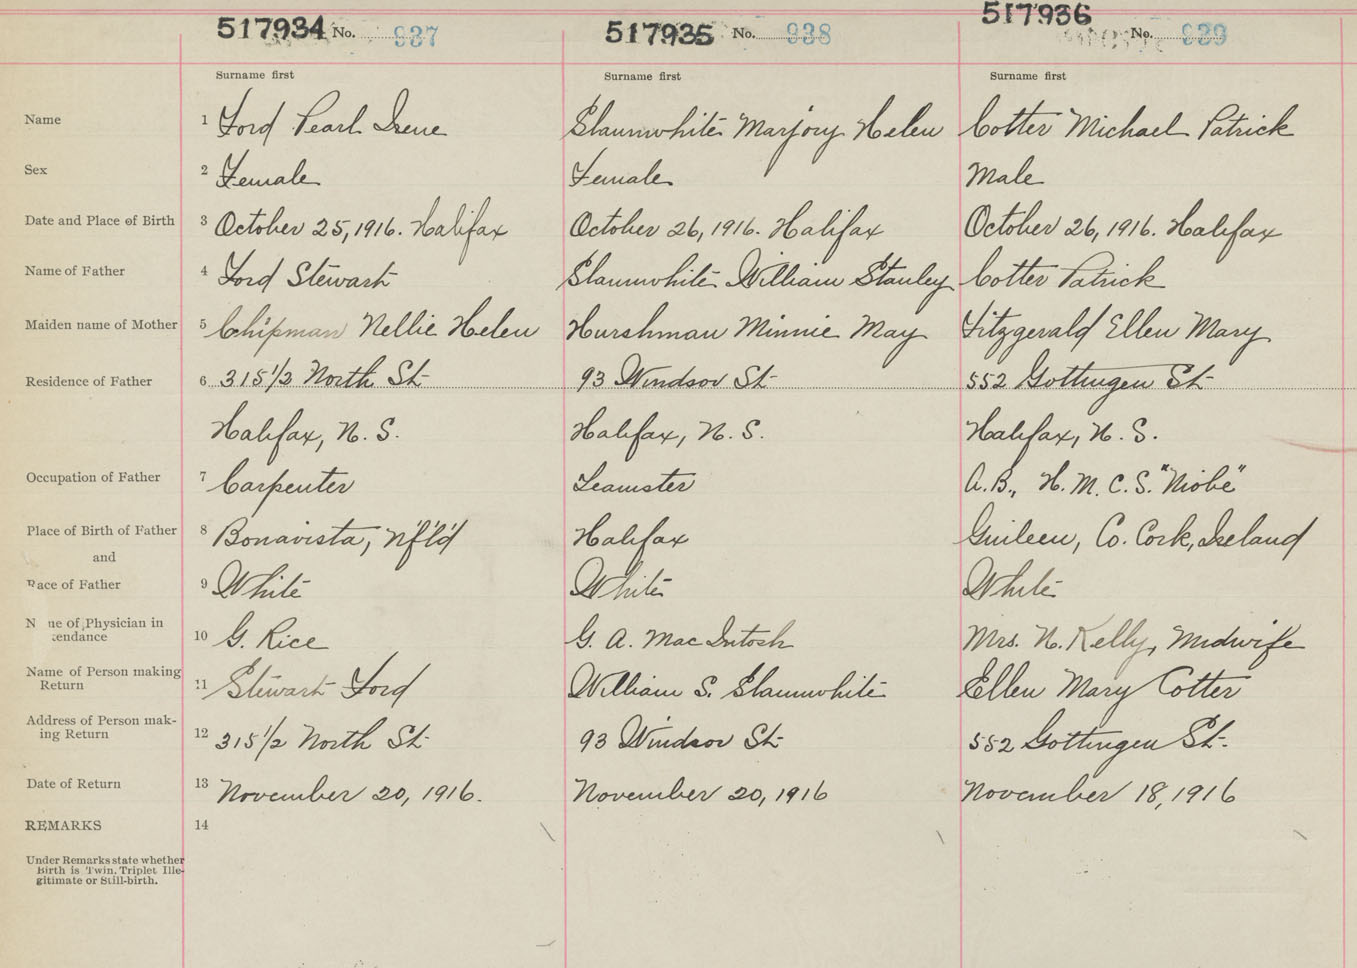 517934 No. 937 517935 No. 938 517936 No. 939
Surname first Surname first Surname first
Name 1 Ford Pearl Irene Slaunwhite Marjory Helen Cotter Michael Patrick
Sex 2 Female Female Male
Date and Place of Birth 3 October 25, 1916. Halifax October 26, 1916. Halifax October 26, 1916. Halifax
Name of Father 4 Ford Stewart Slaunwhite William Stanley Cotter Patrick
Maiden name of Mother 5 Chipman Nellie Helen Hurshman Minnie May Fitzgerald Ellen Mary
Residence of Father 6 315 1/2 North St 93 Windsor St 552 Gottingen St
Halifax, N. S. Halifax, N. S. Halifax, N. S.
Occupation of Father 7 Carpenter Teamster A.B., H. M. C. S. "Niobe"
Place of Birth of Father 8 Bonavista, Nf'l'd Halifax Guileen, Co. Cork, Ireland
and
Race of Father 9 White White White
N me of Physician in
tendance 10 G. Rice G. A. MacIntosh Mrs. N. Kelly, Midwife
Name of Person making
Return 11 Stewart Ford William S. Slaunwhite Ellen Mary Cotter
Address of Person mak-
ing Return 12 315 1/2 North St 93 Windsor St 552 Gottingen St.
Date of Return 13 November 20, 1916. November 20, 1916 November 18, 1916
REMARKS 14
Under Remarks state whether
Birth is Twin, Triplet Ille-
gitimate or Still-birth.